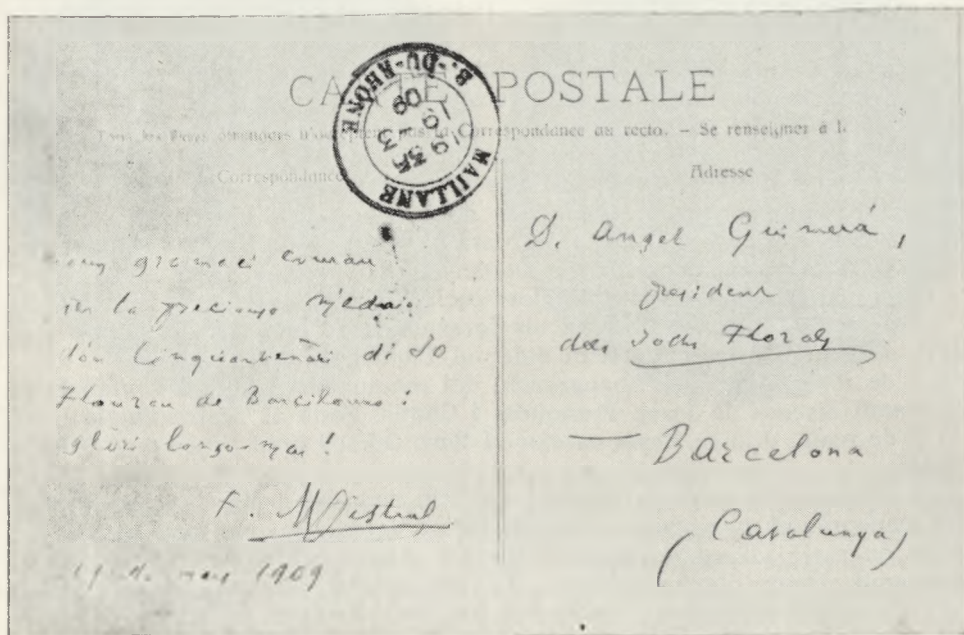 CARTE POSTALE
Tous les Pays étrangers n'acceptent pas la Correspondance au recto. – Se renseigner à la
Correspondance
Adresse
MAILLANE
B.-DU-RHONE
19 3 09
gramaci
la preciouso medaio
dóu Cinquantenàri di Jo
Flourau de Barcilouno!
glòri longo-mai!
F. Mistral
19 de mars 1909
D. Angel Guimerá,
president
dels Jochs Florals
Barcelona
(Catalunya)